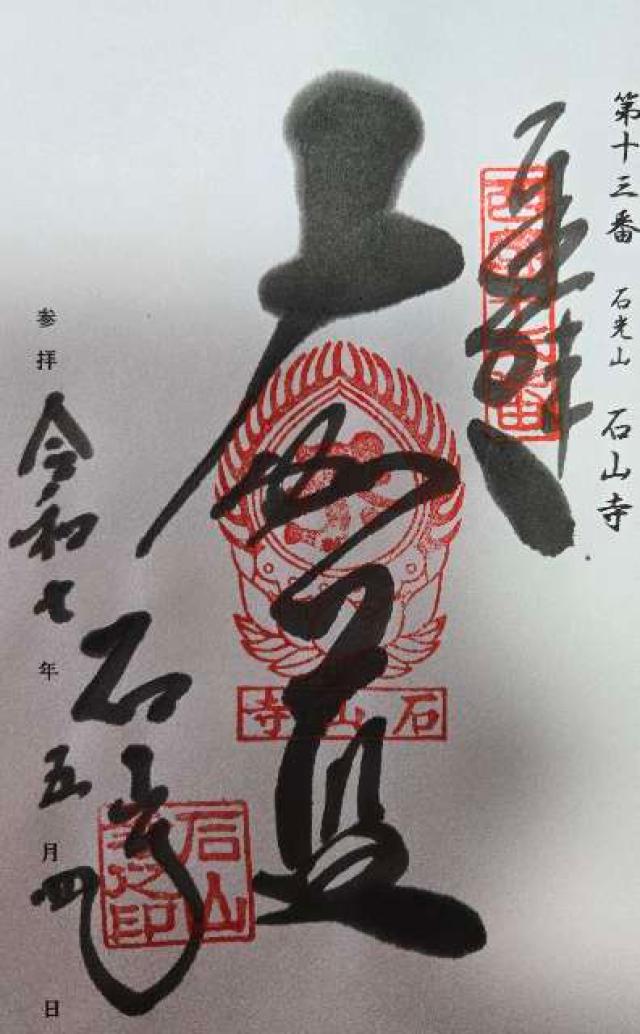 第十三番 石光山 石山寺
奉拝
大伽藍
石山寺
石山寺
石山寺印
参拝 令和七年 五月四日